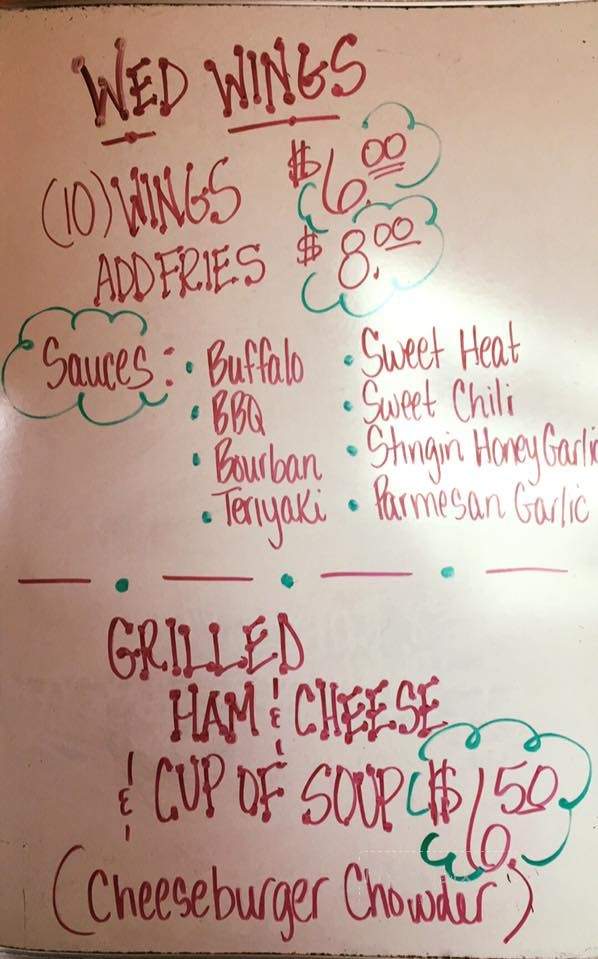 WED WINGS
(10) WINGS $6.00
ADD FRIES $8.00
Sauces: • Buffalo • Sweet Heat
• BBQ • Sweet Chili
• Bourban • Stingin Honey Garlic
• Teriyaki • Parmesan Garlic
GRILLED
HAM & CHEESE
& CUP OF SOUP $6.50
(Cheeseburger Chowder)